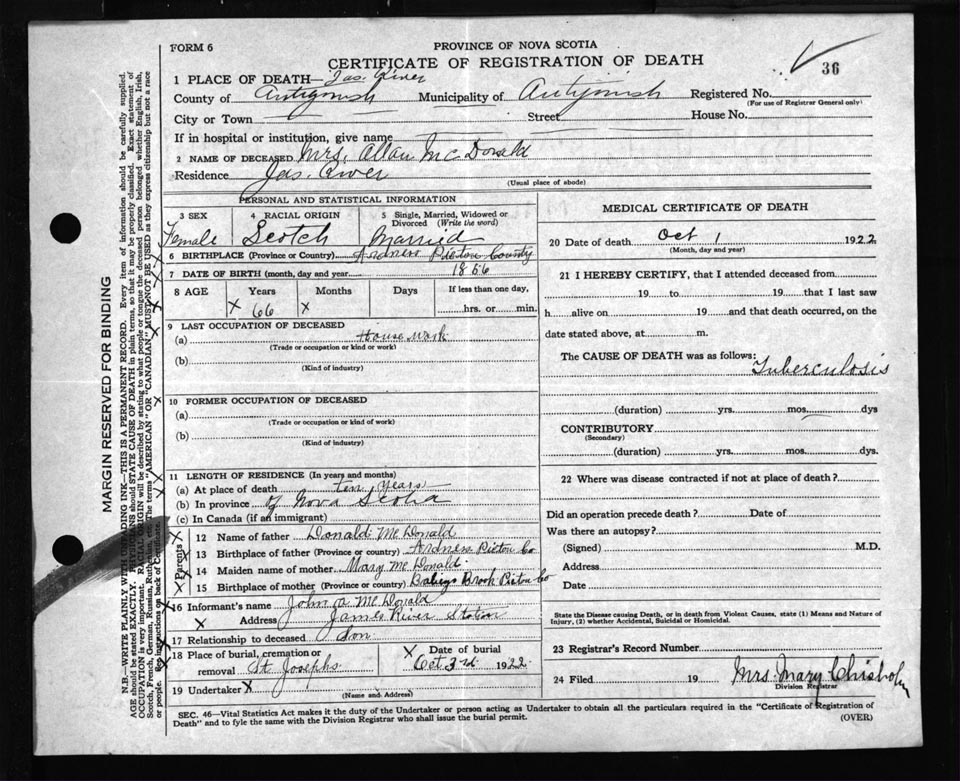 FORM 6
PROVINCE OF NOVA SCOTIA
CERTIFICATE OF REGISTRATION OF DEATH
36
1 PLACE OF DEATH— Jas. River
County of Antigonish Municipality of Antigonish Registered No.
(For use of Registrar General only)
City or Town Street House No.
If in hospital or institution, give name
2 NAME OF DECEASED Mrs. Allan McDonald
Residence Jas. River
(Usual place of abode)
PERSONAL AND STATISTICAL INFORMATION
3 SEX
Female
4 RACIAL ORIGIN
Scotch
5 Single, Married, Widowed or Divorced (Write the word)
Married
6 BIRTHPLACE (Province or Country) Ardness Pictou County
7 DATE OF BIRTH (month, day and year) 1856
8 AGE Years Months Days If less than one day,
X 66 X hrs. or min.
9 LAST OCCUPATION OF DECEASED
(a) House work
(Trade or occupation or kind or work)
(b)
(Kind of industry)
10 FORMER OCCUPATION OF DECEASED
(a)
(Trade or occupation or kind of work)
(b)
(Kind of industry)
11 LENGTH OF RESIDENCE (In years and months)
(a) At place of death ten years
(b) In province of Nova Scotia
(c) In Canada (if an immigrant)
Parents
12 Name of father Donald McDonald
13 Birthplace of father (Province or country) Ardness Pictou Co
14 Maiden name of mother Mary McDonald
15 Birthplace of mother (Province or country) Baleys Brook Pictou Co
16 Informant's name John A McDonald
Address James River Station
17 Relationship to deceased Son
18 Place of burial, cremation or removal St Josephs
Date of burial Oct 3rd 1922
19 Undertaker X
(Name and Address)
MEDICAL CERTIFICATE OF DEATH
20 Date of death Oct 1 1922
(Month, day and year)
21 I HEREBY CERTIFY, that I attended deceased from
19 to 19 that I last saw
h alive on 19 and that death occurred, on the
date stated above, at m.
The CAUSE OF DEATH was as follows:
Tuberculosis
(duration) yrs. mos. dys
CONTRIBUTORY
(Secondary)
(duration) yrs. mos. dys.
22 Where was disease contracted if not at place of death?
Did an operation precede death? Date of
Was there an autopsy?
(Signed) M.D.
Address
Date
State the Disease causing Death, or in death from Violent Causes, state (1) Means and Nature of
Injury, (2) whether Accidental, Suicidal or Homicidal.
23 Registrar's Record Number
24 Filed 19 Mrs. Mary Chisholm
Division Registrar
SEC. 46—Vital Statistics Act makes it the duty of the Undertaker or person acting as Undertaker to obtain all the particulars required in the "Certificate of Registration of
Death" and to fyle the same with the Division Registrar who shall issue the burial permit.
(OVER)
MARGIN RESERVED FOR BINDING
N.B.—WRITE PLAINLY WITH UNFADING INK—THIS IS A PERMANENT RECORD. Every item of information should be carefully supplied.
AGE should be stated EXACTLY. PHYSICIANS should STATE CAUSE OF DEATH in plain terms, so that it may be properly classified. Exact statement of
OCCUPATION is very important. RACIAL ORIGIN will be described by stating to what people or tongue the deceased person belonged whether English, Irish,
Scotch, French, German, Russian, Ruthenian, etc. The terms "AMERICAN" OR "CANADIAN" MUST NOT BE USED as they express citizenship but not a race
or people. See instructions on back of Certificate.